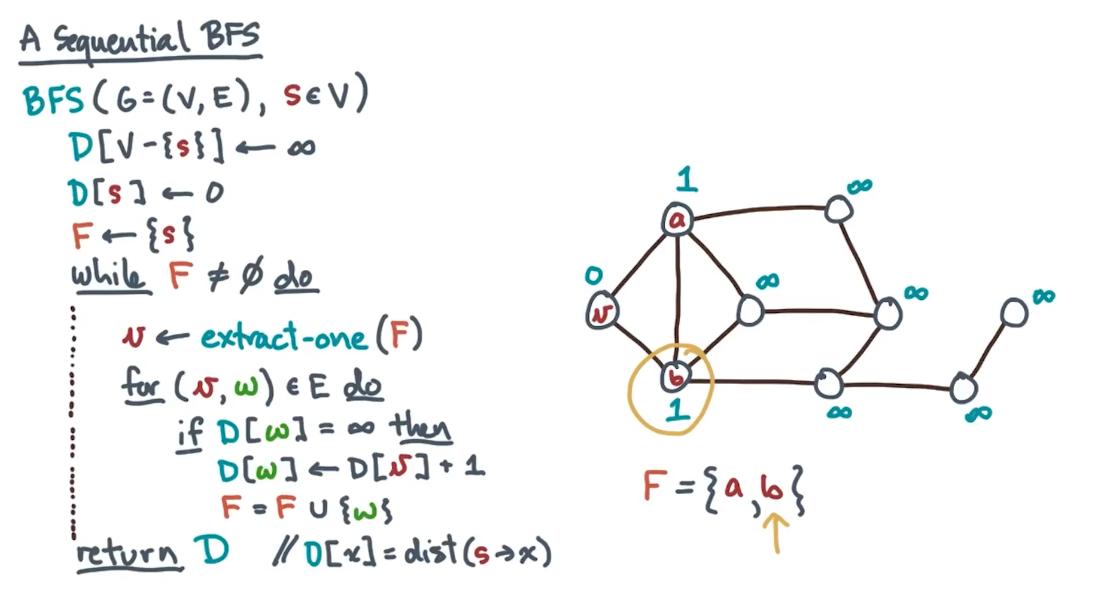 A Sequential BFS
BFS (G=(V,E), s∈V)
D[V-{s}] ← ∞
D[s] ← 0
F ← {s}
while F ≠ ∅ do
v ← extract-one (F)
for (v, w) ∈ E do
if D[w] = ∞ then
D[w] ← D[v] + 1
F = F ∪ {w}
return D // D[x] = dist(s→x)
1
∞
a
0
∞
∞
∞
v
b
1
∞
∞
F = {a, b}